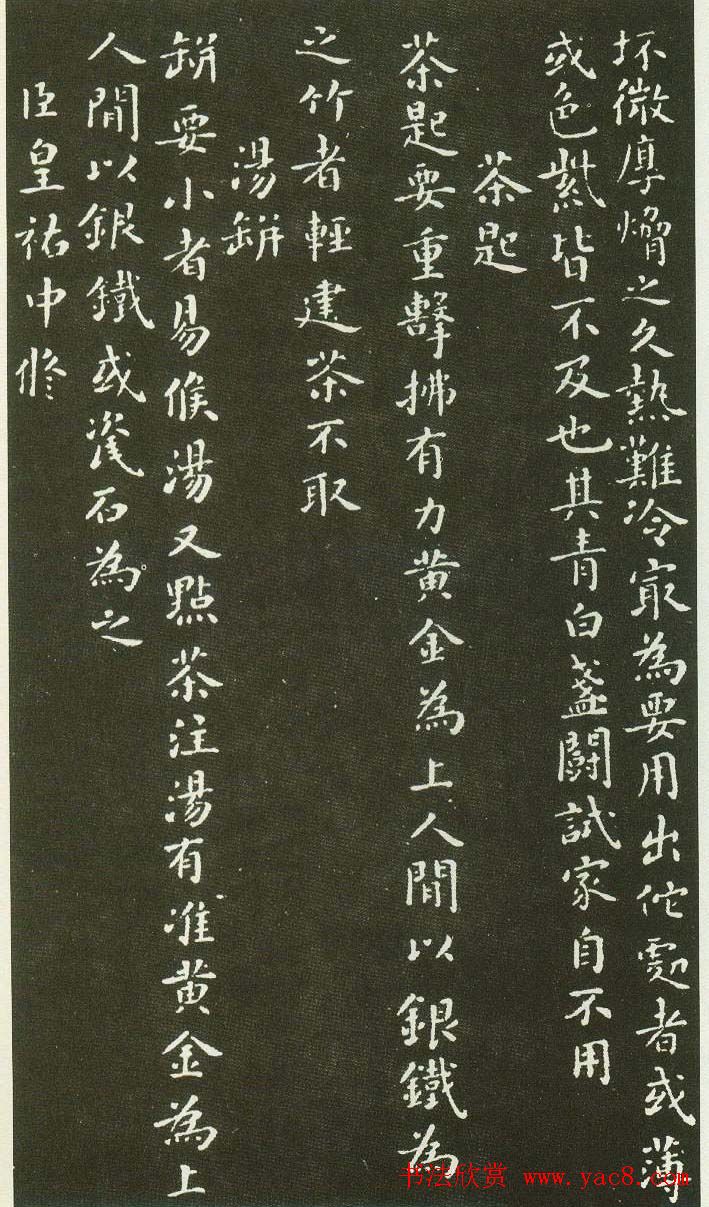 坯微厚熁之久熱難冷㝡為要用出佗處者或薄
或色紫皆不及也其青白盞鬬試家自不用
茶匙
茶匙要重擊拂有力黄金為上人間以銀鐵為
之竹者輕建茶不取
湯缾
缾要小者易候湯又點茶注湯有准黄金為上
人間以銀鐵或瓷石為之
臣皇祐中修
书法欣赏 www.yac8.com